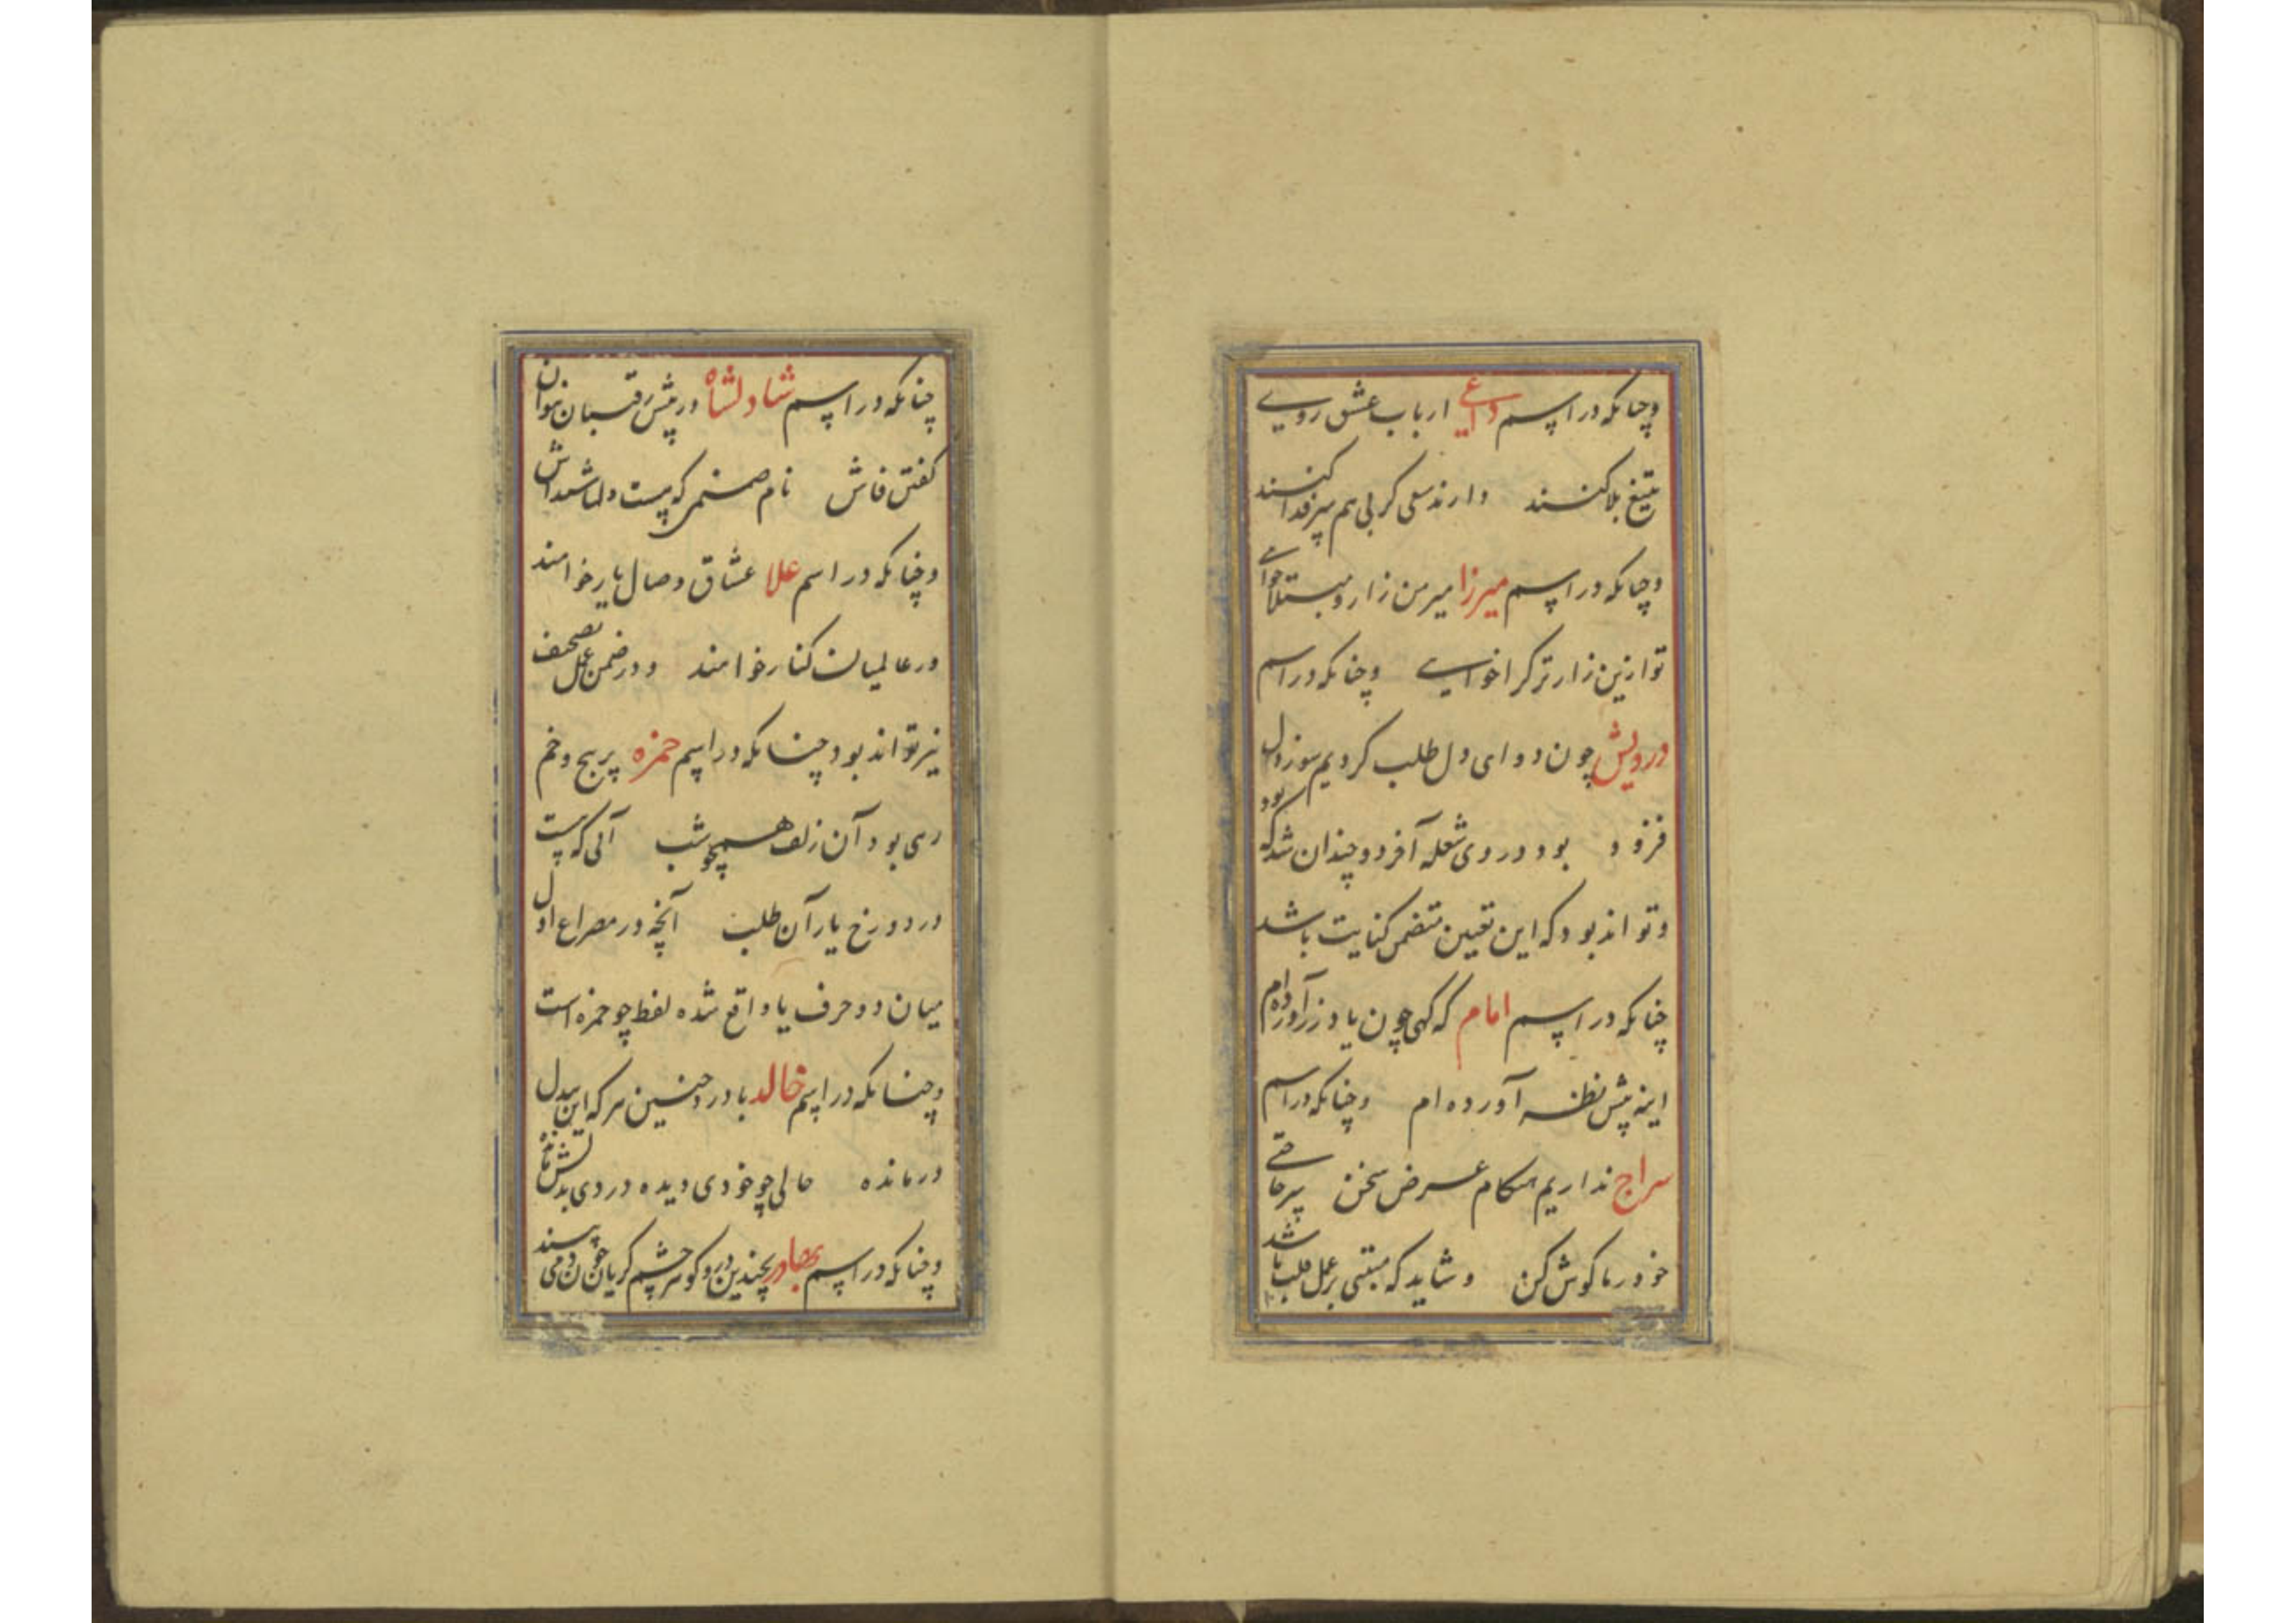 وچنانکه در اسم داعی ارباب عشق روی
بتیغ بلا کنند دارند سلی کر بی هم سر فدا کنند
وچنانکه در اسم میرزا میر من زار و مبتلا خوای
تو ازین زار تر کرا خواهی وچنانکه در اسم
درویش چون دوای دل طلب کردیم سوز دل
فزود بود در وی شعله آفزد و چندان شد که بود
وتواند بود که این تعیین متضمن کنایت باشد
چنانکه در اسم امام که کهی چون یاد زر آورده ام
اینه پیش نظر آورده ام وچنانکه در اسم
سراج نداریم هنکام عرض سخن سر حاقی
خود در ما کوش کن وشاید که مبتنی بر عمل قلب باشد
چنانکه در اسم شاد لشاه در پیش رقیبان نتوان
کفتن فاش نام صنمی که هست دلها شیداش
وچنانکه در اسم علا عشاق وصال یار خواهند
در عالمیان کنار خواهند ودر ضمن عمل تصحیف
نیز تواند بود چنانکه در اسم حمزه پر پیچ وخم
ری بود آن زلف همچو شب آلی که هست
در دور رخ یار آن طلب آنچه در مصراع اول
میان دو حرف یا واقع شده لفظ چو حمزه است
وچنانکه در اسم خالد با درد چنین هر که این بیدل
در مانده حالی چو خودی دیده در وی بدلش مانده
وچنانکه در اسم بهادر بچندین در و کوهر چشم کریان چون دمی پسند